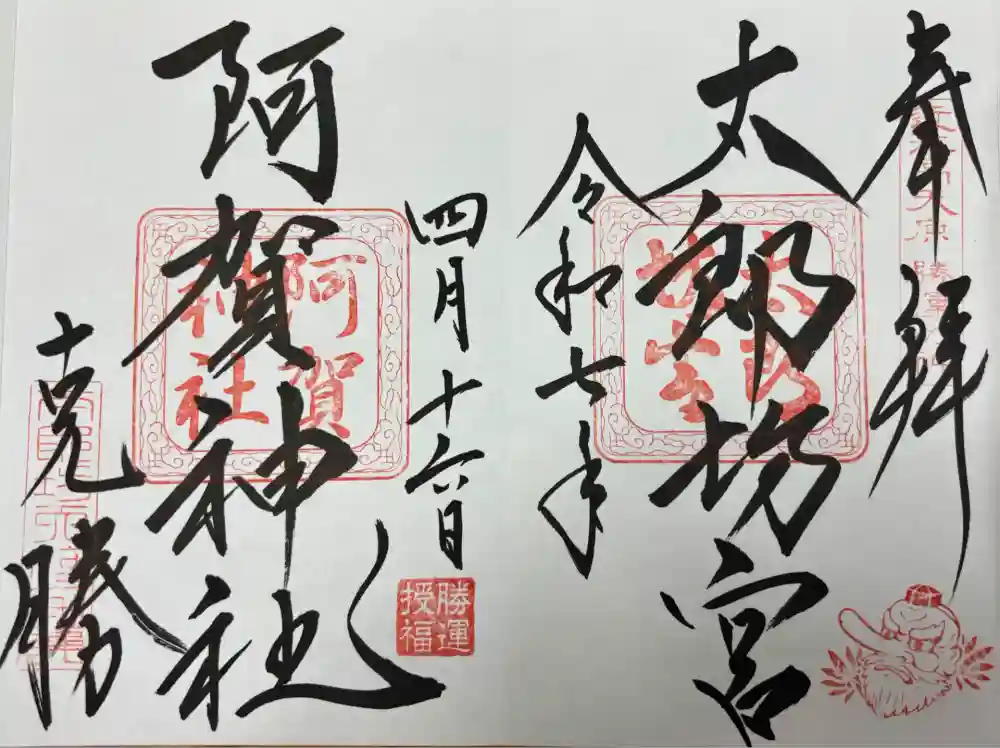 奉拝
太郎坊宮
令和七年
四月十六日
阿賀神社
克勝
太郎坊宮
阿賀神社
勝運授福